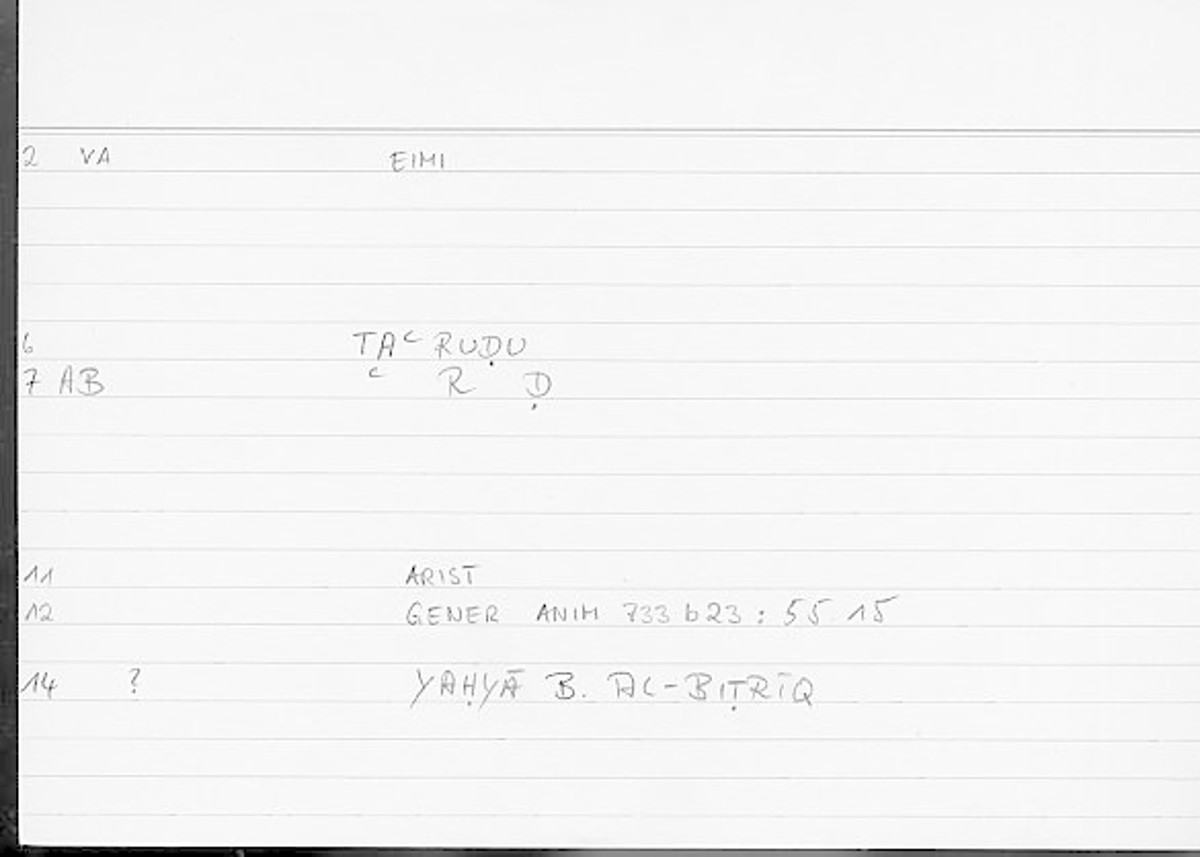 2 VA EIMI
6 TAʿRUḌU
7 AB ʿ R Ḍ
11 ARIST
12 GENER ANIM 733 b 23 : 55 15
14 ? YAḤYĀ B. AL-BIṬRĪQ